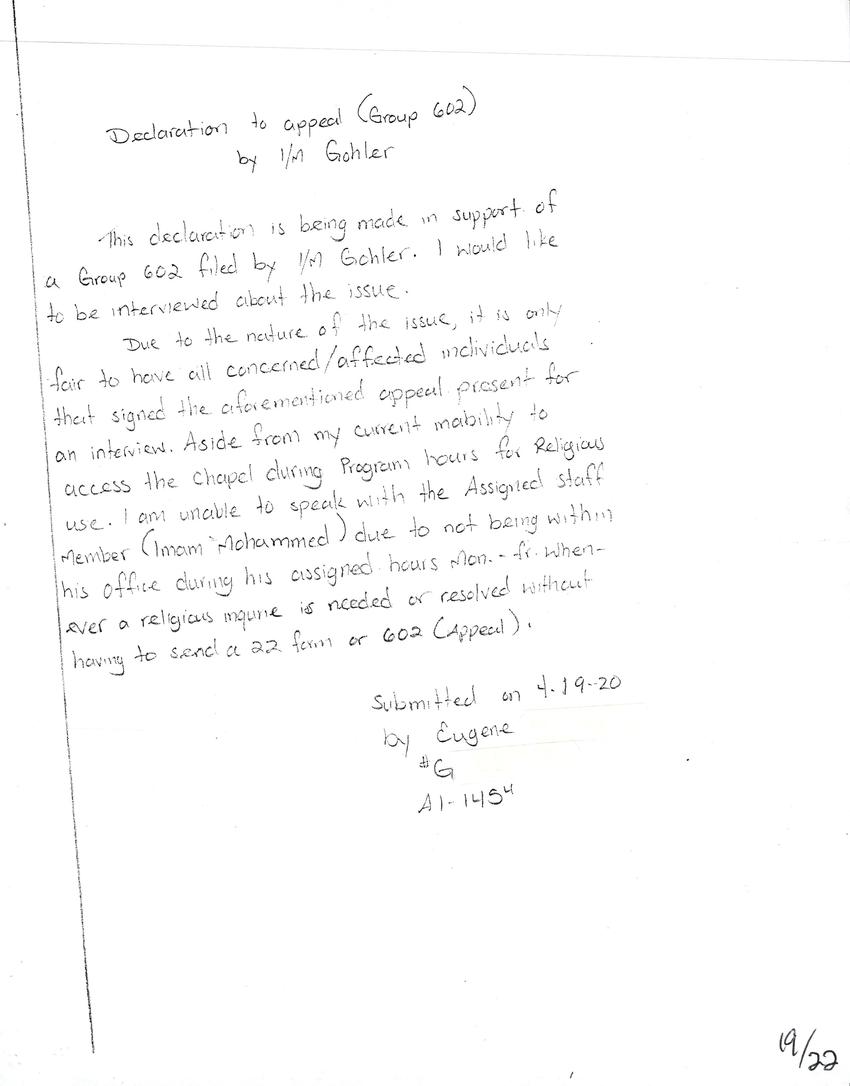 Declaration to appeal (Group 602)
by I/M Gohler
This declaration is being made in support of
a Group 602 filed by I/M Gohler. I would like
to be interviewed about the issue.
Due to the nature of the issue, it is only
fair to have all concerned/affected individuals
that signed the aforementioned appeal present for
an interview. Aside from my current inability to
access the Chapel during Program hours for Religious
use. I am unable to speak with the Assigned staff
Member (Imam Mohammed) due to not being within
his office during his assigned hours Mon. - fr. When-
ever a religious inquirie is needed or resolved without
having to send a 22 form or 602 (Appeal).
Submitted on 4-19-20
by Eugene
#G
A1-145⁴
19/22